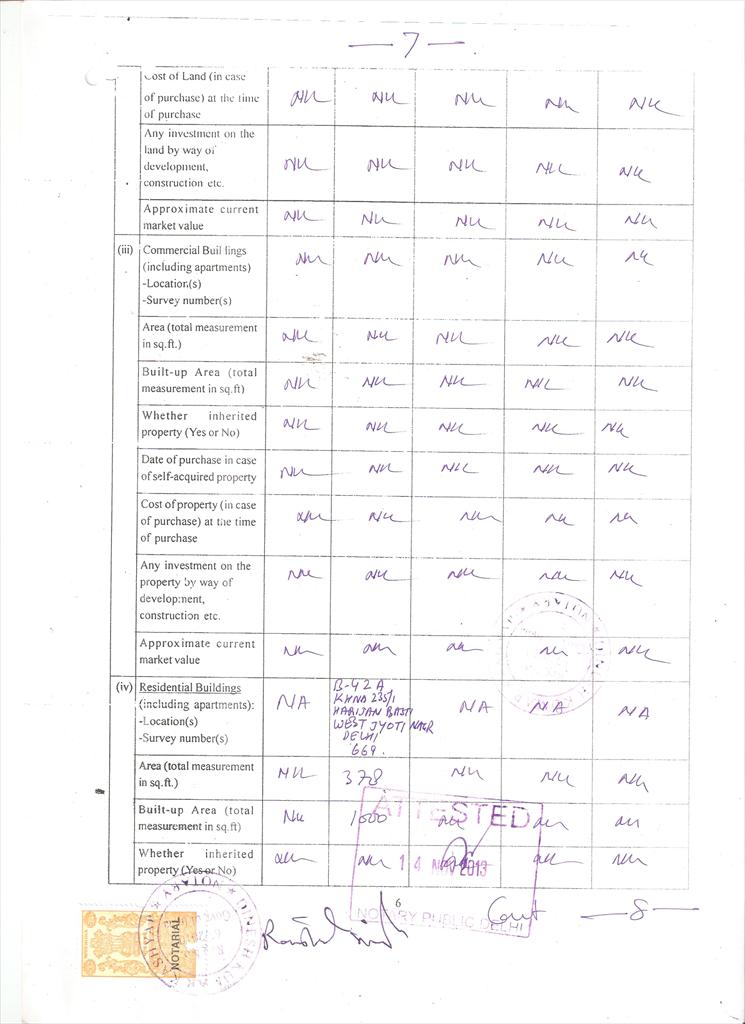 — 7 —
Cost of Land (in case
of purchase) at the time
of purchase
Nil Nil Nil Nil Nil
Any investment on the
land by way of
development,
construction etc.
Nil Nil Nil Nil Nil
Approximate current
market value
Nil Nil Nil Nil Nil
(iii) Commercial Buildings
(including apartments)
-Location(s)
-Survey number(s)
Nil Nil Nil Nil Nil
Area (total measurement
in sq.ft.)
Nil Nil Nil Nil Nil
Built-up Area (total
measurement in sq.ft)
Nil Nil Nil Nil Nil
Whether inherited
property (Yes or No)
Nil Nil Nil Nil Nil
Date of purchase in case
of self-acquired property
Nil Nil Nil Nil Nil
Cost of property (in case
of purchase) at the time
of purchase
Nil Nil Nil Nil Nil
Any investment on the
property by way of
development,
construction etc.
Nil Nil Nil Nil Nil
Approximate current
market value
Nil Nil Nil Nil Nil
(iv) Residential Buildings
(including apartments):
-Location(s)
-Survey number(s)
NA
B-42A
KHNO 235/1
HARIJAN BASTI
WEST JYOTI NAGR
DELHI
669.
NA NA NA
Area (total measurement
in sq.ft.)
Nil 378 Nil Nil Nil
Built-up Area (total
measurement in sq.ft)
Nil 1000 Nil Nil Nil
Whether inherited
property (Yes or No)
Nil Nil Nil Nil Nil
ATTESTED
14 NOV 2013
NOTARY PUBLIC DELHI
6
Cont — 8 —
NOTARIAL
NOTARY
DINESH KUMAR KASHYAP